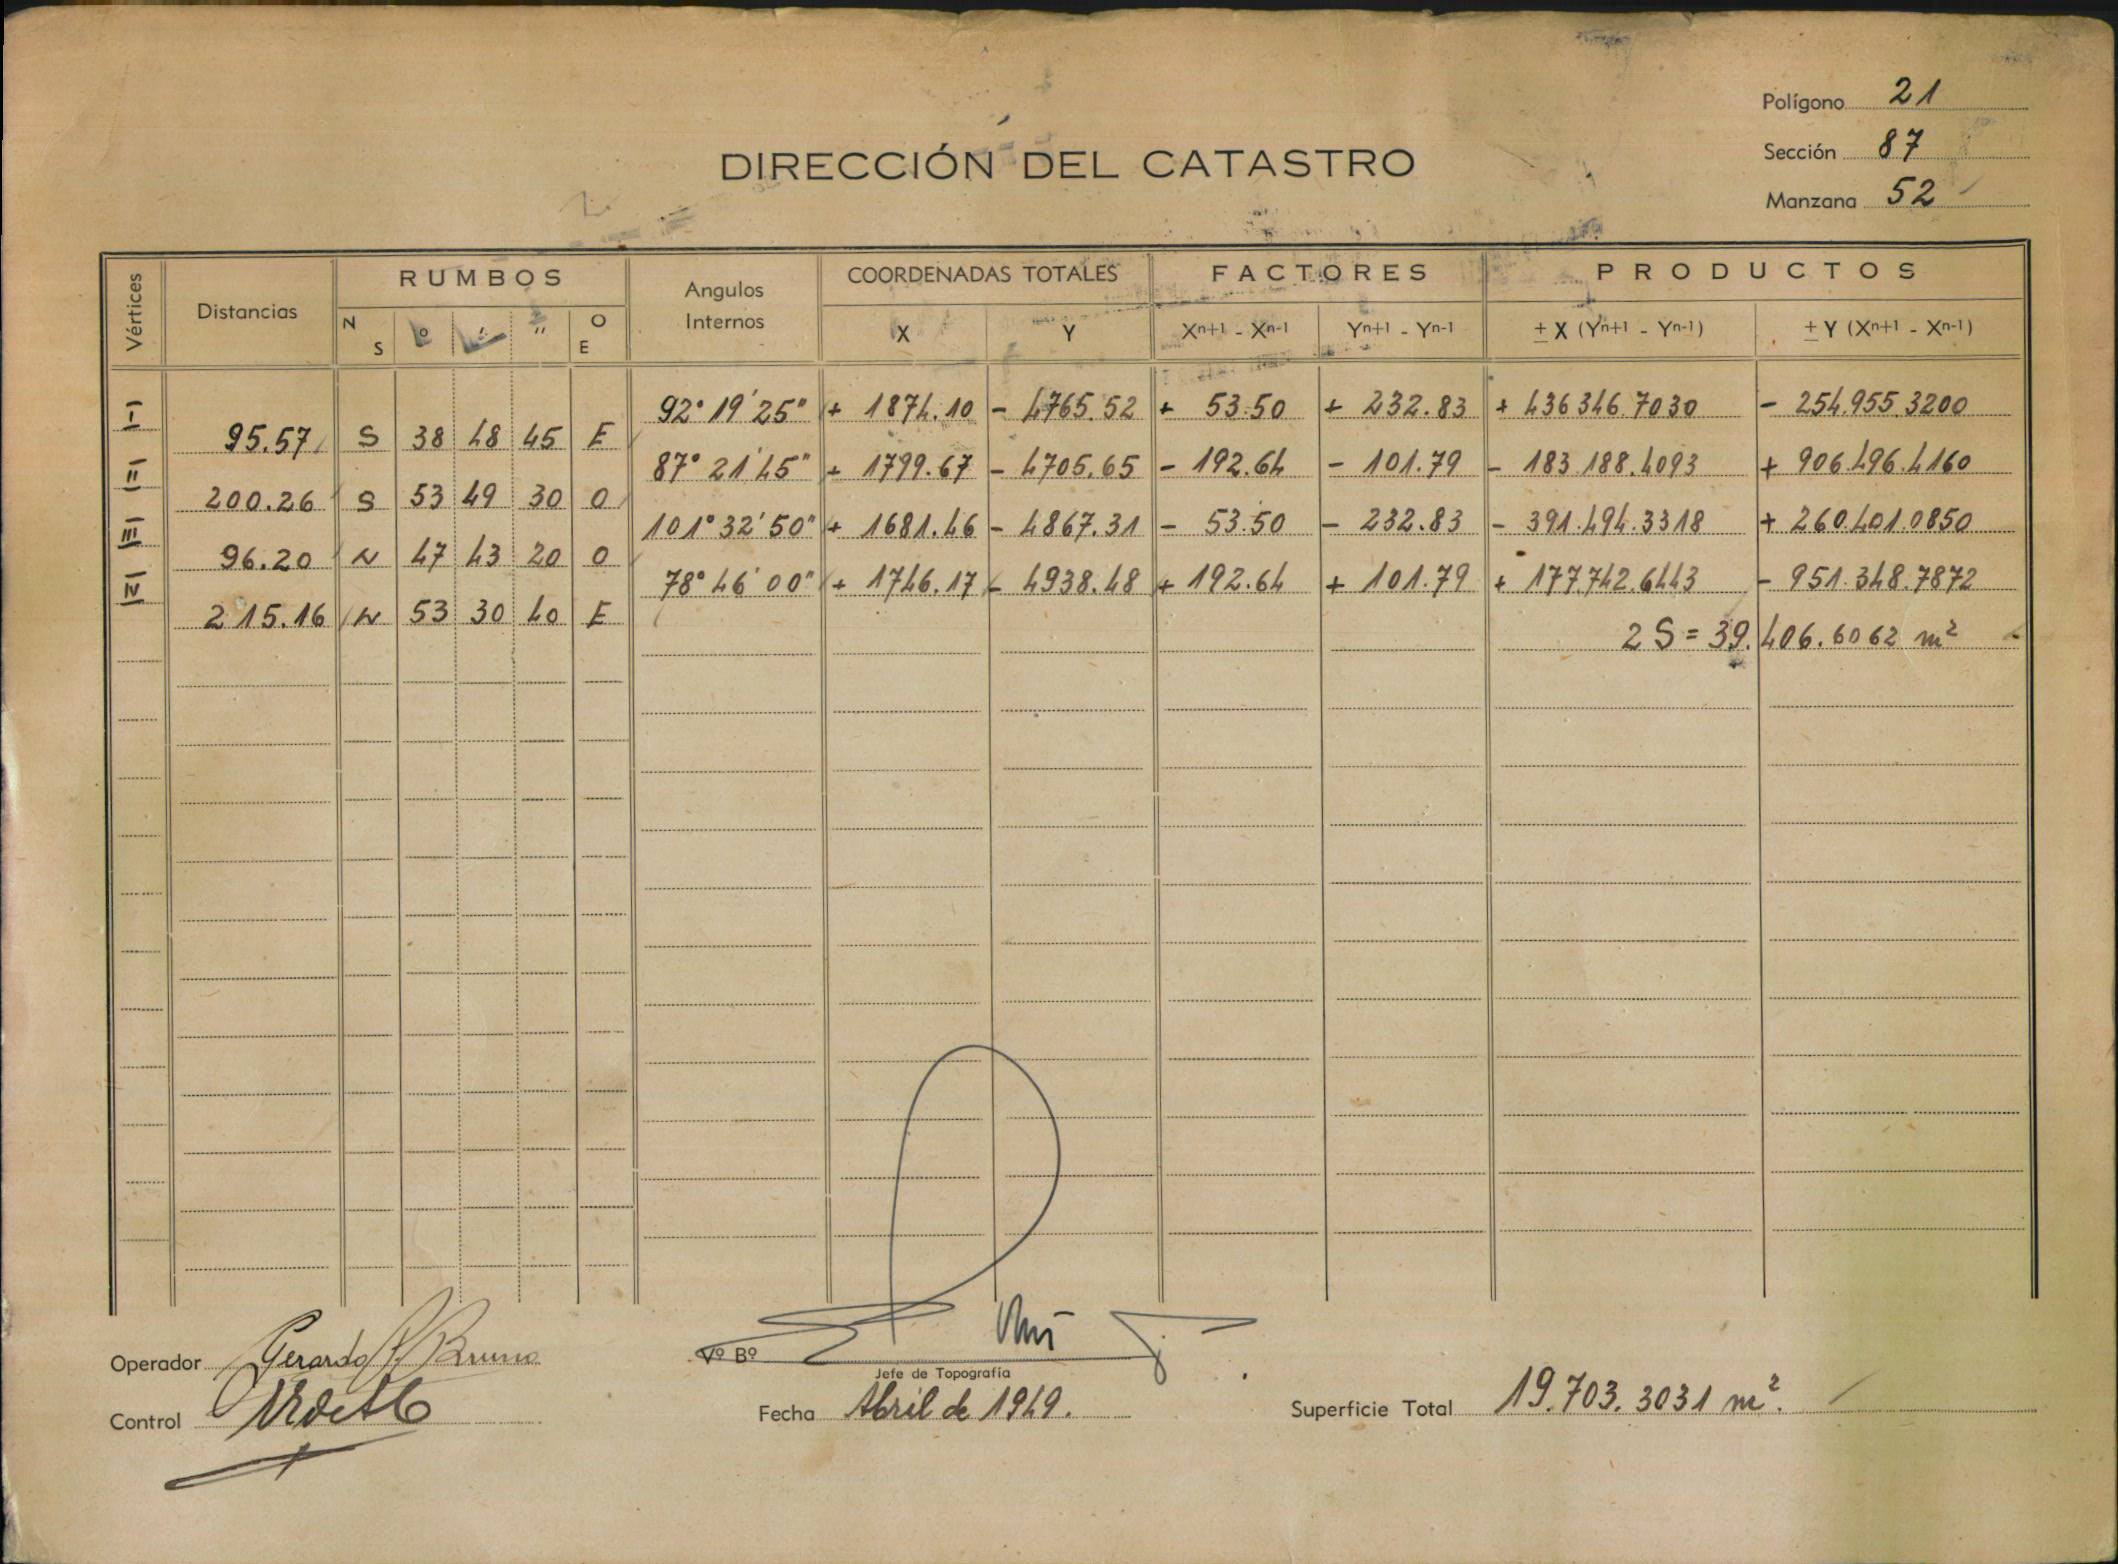 Polígono 21
Sección 87
Manzana 52
DIRECCIÓN DEL CATASTRO
Vértices Distancias RUMBOS Angulos Internos COORDENADAS TOTALES FACTORES PRODUCTOS
N S ° ' " O E X Y Xn+1 - Xn-1 Yn+1 - Yn-1 ± X (Yn+1 - Yn-1) ± Y (Xn+1 - Xn-1)
I 92° 19' 25" + 1874.10 - 4765.52 + 53.50 + 232.83 + 436346.7030 - 254.955.3200
95.57 S 38 48 45 E
II 87° 21' 45" + 1799.67 - 4705.65 - 192.64 - 101.79 - 183.188.4093 + 906.496.4160
200.26 S 53 49 30 O
III 101° 32' 50" + 1681.46 - 4867.31 - 53.50 - 232.83 - 391.494.3318 + 260.401.0850
96.20 N 47 43 20 O
IV 78° 46' 00" + 1746.17 - 4938.48 + 192.64 + 101.79 + 177.742.6443 - 951.348.7872
215.16 N 53 30 40 E
2 S = 39.406.6062 m²
Operador Gerardo Bruno
Control
Vº Bº
Jefe de Topografía
Fecha Abril de 1949.
Superficie Total 19.703.3031 m².